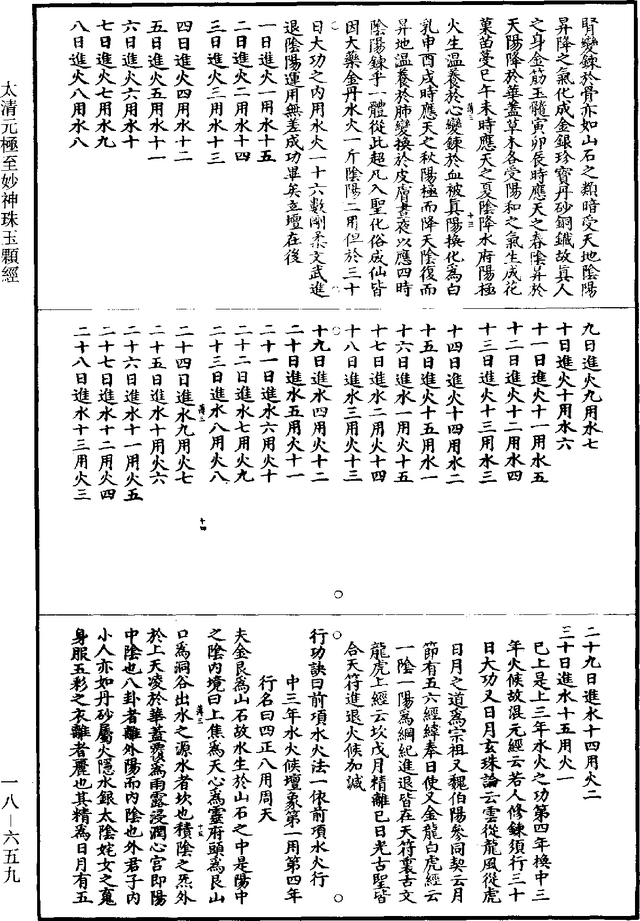 腎變鍊於骨亦如山石之類暗受天地陰陽
昇降之氣化成金銀珍寶丹砂銅鐵故眞人
之身金筋玉髓寅卯辰時應天之春陰昇於
天陽降於華蓋草木各受陽和之氣生成花
菓苗蔓巳午未時應天之夏陰降水府陽極
火生溫養於心變鍊於血被眞陽換化爲白
乳申酉戌時應天之秋陽極而降天陰復而
昇地溫養於肺變換於皮膚晝夜以應四時
陰陽鍊乎一體從此超凡入聖化俗成仙皆
因大藥金丹水火一斤陰陽二用但於三十
日大功之內用水火一十六數剛柔文武進
退陰陽運用無差成功畢矣立壇在後
一日進火一用水十五
二日進火二用水十四
三日進火三用水十三
四日進火四用水十二
五日進火五用水十一
六日進火六用水十
七日進火七用水九
八日進火八用水八
九日進火九用水七
十日進火十用水六
十一日進火十一用水五
十二日進火十二用水四
十三日進火十三用水三
十四日進火十四用水二
十五日進火十五用水一
十六日進水一用火十五
十七日進水二用火十四
十八日進水三用火十三
十九日進水四用火十二
二十日進水五用火十一
二十一日進水六用火十
二十二日進水七用火九
二十三日進水八用火八
二十四日進水九用火七
二十五日進水十用火六
二十六日進水十一用火五
二十七日進水十二用火四
二十八日進水十三用火三
二十九日進水十四用火二
三十日進水十五用火一
巳上是上三年水火之功第四年換中三
年火候故混元經云若人修鍊須行三十
日大功又日月玄珠論云雲從龍風從虎
日月之道爲宗祖又魏伯陽參同契云月
節有五六經緯奉日使又金龍白虎經云
一陰一陽爲綱紀進退皆在天符裏古文
龍虎上經云坎戊月精離巳日光古聖皆
合天符進退火候加減
行功訣曰前項水火法一依前項水火行
中三年水火候壇象第一用第四年
行名曰四正八用周天
夫金艮爲山石故水生於山石之中是陽中
之陰內境曰上焦爲天心爲靈府頭爲艮山
口爲洞谷出水之源水者坎也積陰之炁外
於上天凌於華蓋覆爲雨露浸潤心宮即陽
中陰也八卦者離外陽而內陰也外君子內
小人亦如丹砂屬火隱水銀太陰姹女之䰟
身服五彩之衣離者麗也其精爲日月有五
太清元極至妙神珠玉顆經
一八－六五九